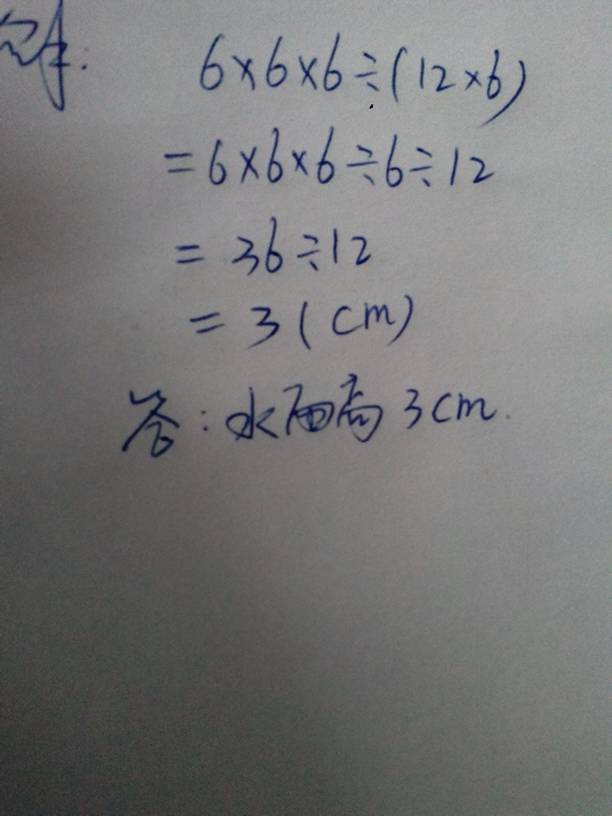 解:
6×6×6÷(12×6)
=6×6×6÷6÷12
=36÷12
=3(cm)
答:水面高3cm.